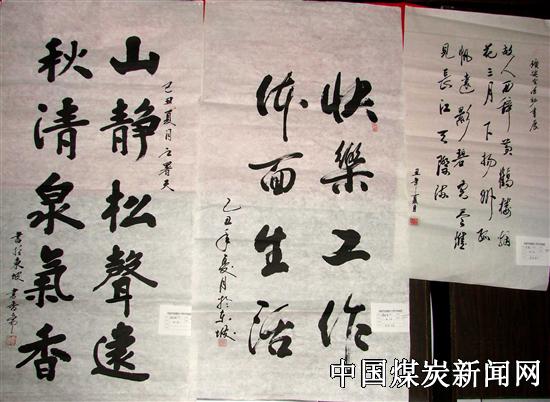 山靜松聲遠
秋清泉氣香
己丑夏月
書於東坡
快樂工作
体面生活
乙丑年夏月於东坡
故人西辞黄鶴楼烟
花三月下扬州孤
帆遠影碧空尽唯
見長江天際流
中国煤炭新闻网